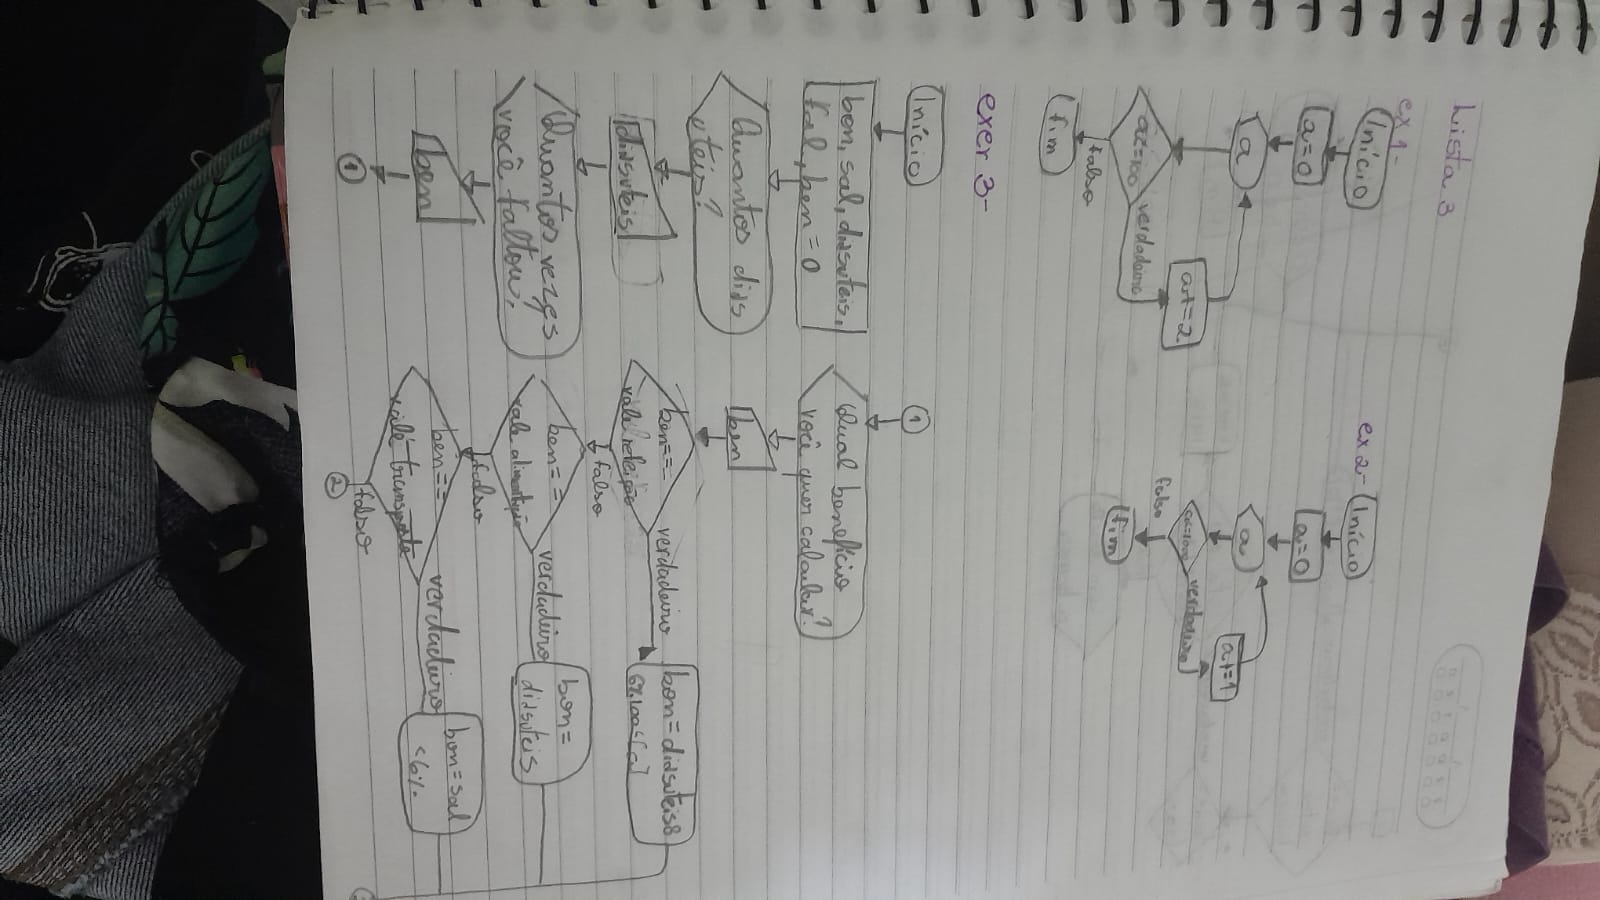 Lista 3
ex 1-
Início
a=0
a
a<=100
verdadeiro
a+=2
falso
fim
ex 2-
Início
a=0
a
verdadeiro
a+=1
falso
fim
exer 3-
Início
bon, sal, diasuteis,
fal, ben = 0
Quantos dias
uteis?
diasuteis
Quantas vezes
você faltou?
ben
1
1
Qual beneficio
você quer calcular?
ben
ben==
vale refeição
verdadeiro
bon=diasuteis
falso
ben==
vale alimentação
verdadeiro
bon=
diasuteis
falso
ben==
vale transporte
verdadeiro
bon=sal
<6%
falso
2